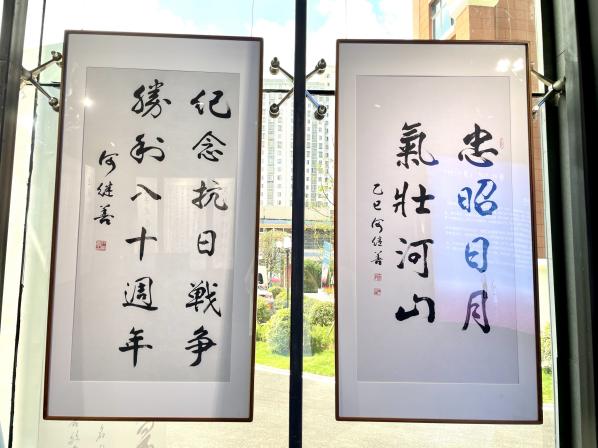 纪念抗日戰争
勝利八十週年
何继善
忠昭日月
氣壯河山
乙巳何继善